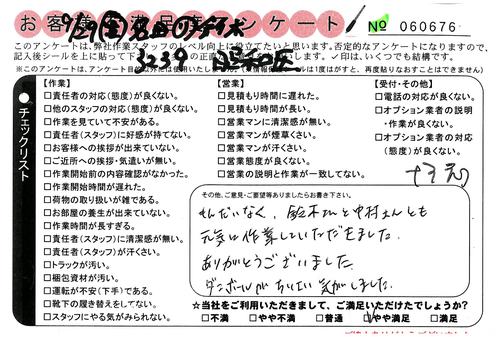 お客様満足度アンケート
№ 060676
9/29(金)
3239
このアンケートは、弊社作業スタッフのレベル向上に役立てたいと思います。否定的なアンケートになりますので、
記入後シールを上に貼って下
✓印は、いくつでも結構です。
チェックリスト
【作業】
□責任者の対応(態度)が良くない。
□他のスタッフの対応(態度)が良くない。
□作業を見ていて不安がある。
□責任者(スタッフ)に好感が持てない。
□お客様への挨拶が出来ていない。
□ご近所への挨拶・気遣いが無い。
□作業開始前の内容確認がなかった。
□作業開始時間が遅れた。
□荷物の取り扱いが雑である。
□お部屋の養生が出来ていない。
□作業時間が長すぎる。
□責任者(スタッフ)に清潔感が無い。
□責任者(スタッフ)が汗くさい。
□トラックが汚い。
□梱包資材が汚い。
□運転が不安(下手)である。
□靴下の履き替えをしてない。
□スタッフにやる気がみられない。
【営業】
□見積もり時間に遅れた。
□見積もり時間が長い。
□営業マンに清潔感が無い。
□営業マンが煙草くさい。
□営業マンが汗くさい。
□営業態度が良くない。
□営業の説明と作業が一致してない。
【受付・その他】
□電話の対応が良くない。
□オプション業者の説明
・作業が良くない。
□オプション業者の対応
(態度)が良くない。
その他、ご意見・ご要望等ありましたらお書き下さい。
もんだいなく、鈴木さんと中村さんとも
元気に作業していただきました。
ありがとうございました。
ダンボールがちいさい気がしました。
☆当社をご利用いただきまして、ご満足いただけたでしょうか?
□不満 □やや不満 □普通 □やや満足 □満足